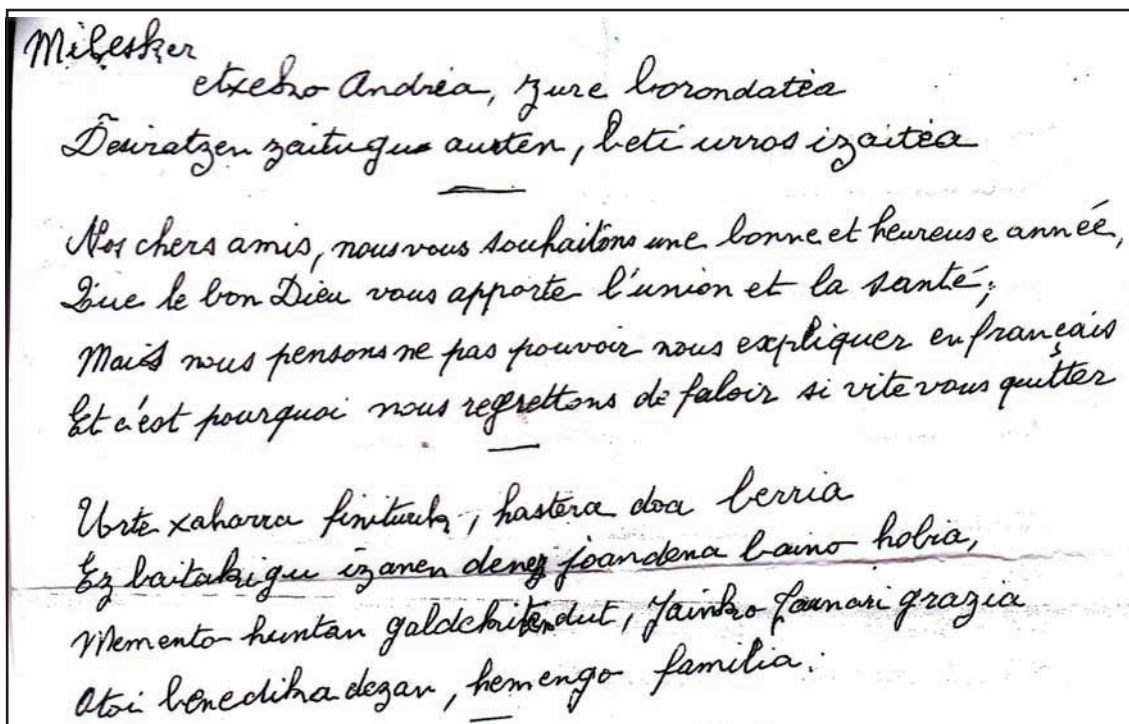 Milesker
etxeko Andréa, zure borondatéa
Desiratzen zaitugu aurten, beti urros izaitéa
Nos chers amis, nous vous souhaitons une bonne et heureuse année,
Que le bon Dieu vous apporte l'union et la santé;
Mais nous pensons ne pas pouvoir nous expliquer en français
Et c'est pourquoi nous regrettons de faloir si vite vous quitter
Urte xaharra finiturik, hastera doa berria
Ez baitakigu izanen denez joandena baino hobia,
Memento huntan galdekiten dut, Jainko Jaunari grazia
Otoi benedika dezan, hemengo familia.